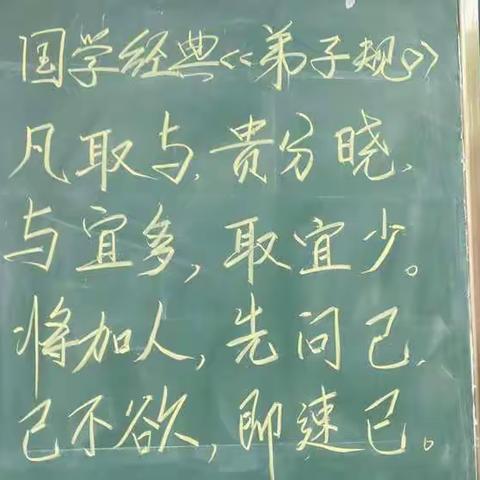 国学经典《弟子规》
凡取与,贵分晓,
与宜多,取宜少。
将加人,先问己,
己不欲,即速已。